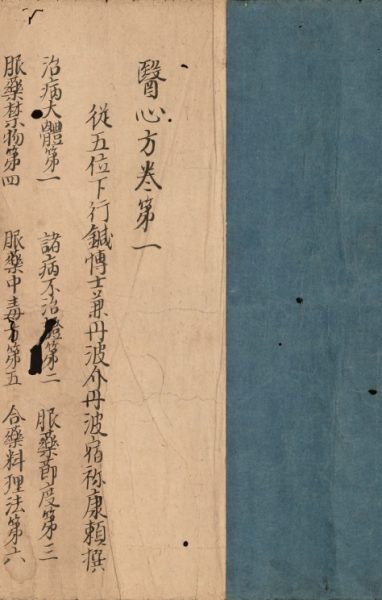 醫心方卷第一
從五位下行鍼博士兼丹波介丹波宿祢康頼撰
治病大體第一 諸病不治證第二 服藥節度第三
服藥禁物第四 服藥中毒方第五 合藥料理法第六